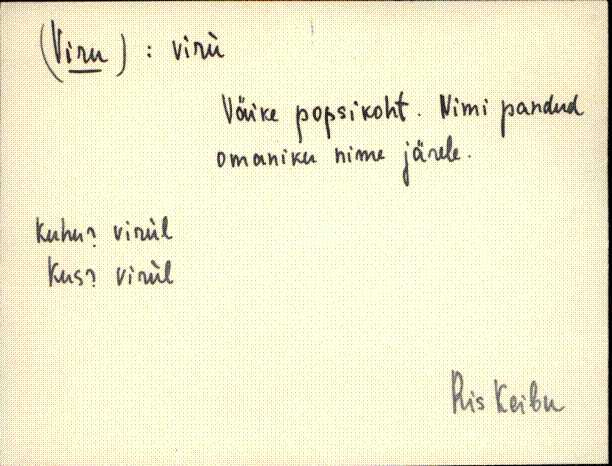 (Viru) : virù
Väike popsikoht. Nimi pandud
omaniku nime järele.
Kuhu? virùl
Kus? virùl
Ris Keibu